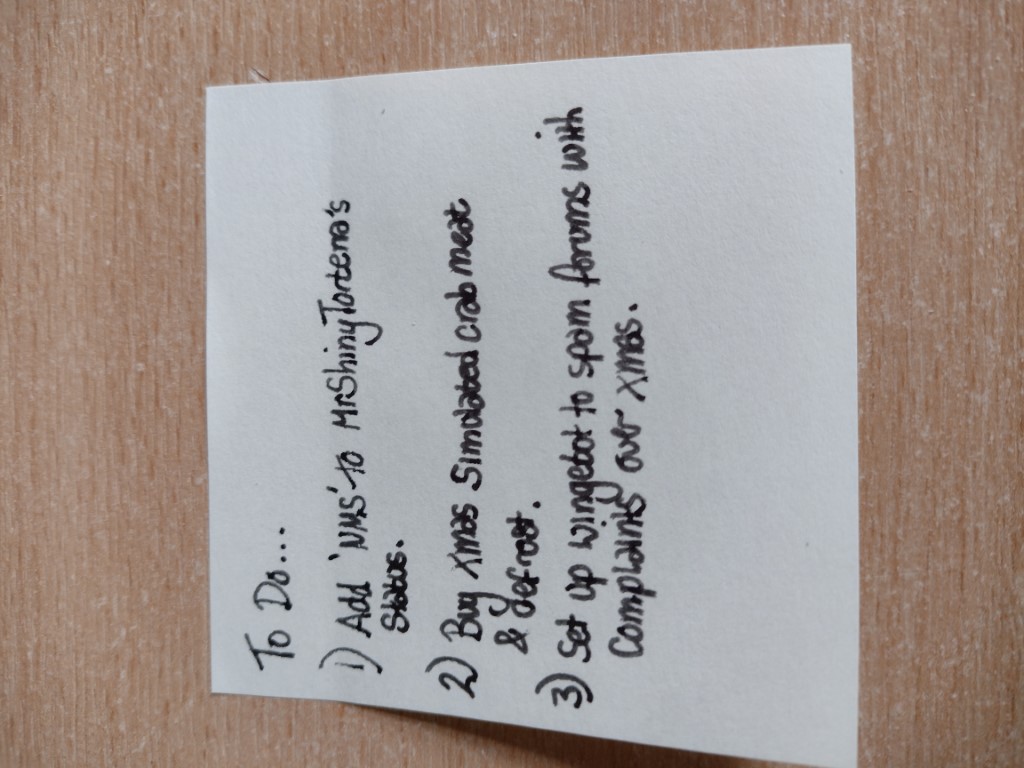 To Do...
1) Add 'NMS' to MrShinyTortena's
Status.
2) Buy Xmas Simulated crab meat
& defrost.
3) Set up wingebot to spam forums with
Complaints over Xmas.